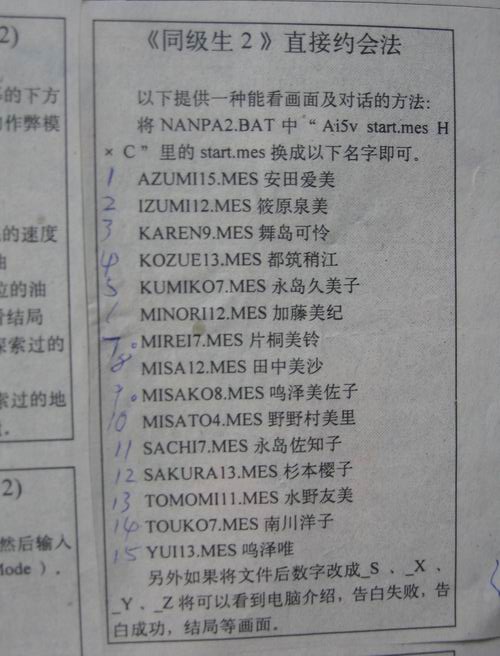 2)
的下方
作弊模
的速度
油
位的油
结局
探索过的
索过的地
2)
然后输入
Mode）.
《同级生2》直接约会法
以下提供一种能看画面及对话的方法:
将 NANPA2.BAT 中“ Ai5v start.mes H
× C ” 里的 start.mes 换成以下名字即可。
1 AZUMI15.MES 安田爱美
2 IZUMI12.MES 筱原泉美
3 KAREN9.MES 舞岛可怜
4 KOZUE13.MES 都筑稍江
5 KUMIKO7.MES 永岛久美子
MINORI12.MES 加藤美纪
7。MIREI7.MES 片桐美铃
8 MISA12.MES 田中美沙
9。MISAKO8.MES 鸣泽美佐子
10 MISATO4.MES 野野村美里
11 SACHI7.MES 永岛佐知子
12 SAKURA13.MES 杉本樱子
13 TOMOMI11.MES 水野友美
14 TOUKO7.MES 南川洋子
15 YUI13.MES 鸣泽唯
另外如果将文件后数字改成_S 、_X 、
_Y 、_Z 将可以看到电脑介绍，告白失败，告
白成功，结局等画面.